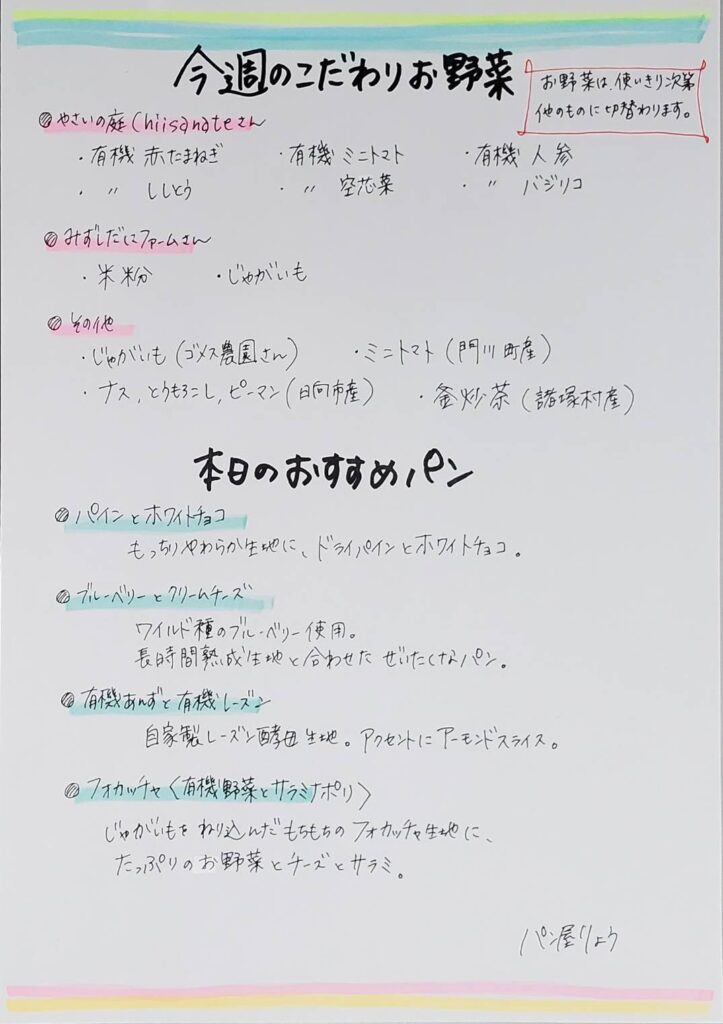 今週のこだわりお野菜
お野菜は、使いきり次第
他のものに切替わります。
やさいの庭Chiisanateさん
・有機 赤たまねぎ ・有機 ミニトマト ・有機 人参
・〃 ししとう ・〃 空芯菜 ・〃 バジリコ
みずしだにファームさん
・米粉 ・じゃがいも
その他
・じゃがいも(ゴメス農園さん) ・ミニトマト(門川町産)
・ナス、とうもろこし、ピーマン(日向市産) ・釜炒茶(諸塚村産)
本日のおすすめパン
パインとホワイトチョコ
もっちりやわらか生地に、ドライパインとホワイトチョコ。
ブルーベリーとクリームチーズ
ワイルド種のブルーベリー使用。
長時間熟成生地と合わせたぜいたくなパン。
有機あんずと有機レーズン
自家製レーズン酵母生地。アクセントにアーモンドスライス。
フォカッチャ〈有機野菜とサラミナポリ〉
じゃがいもをねり込んだもちもちのフォカッチャ生地に、
たっぷりのお野菜とチーズとサラミ。
パン屋りょう